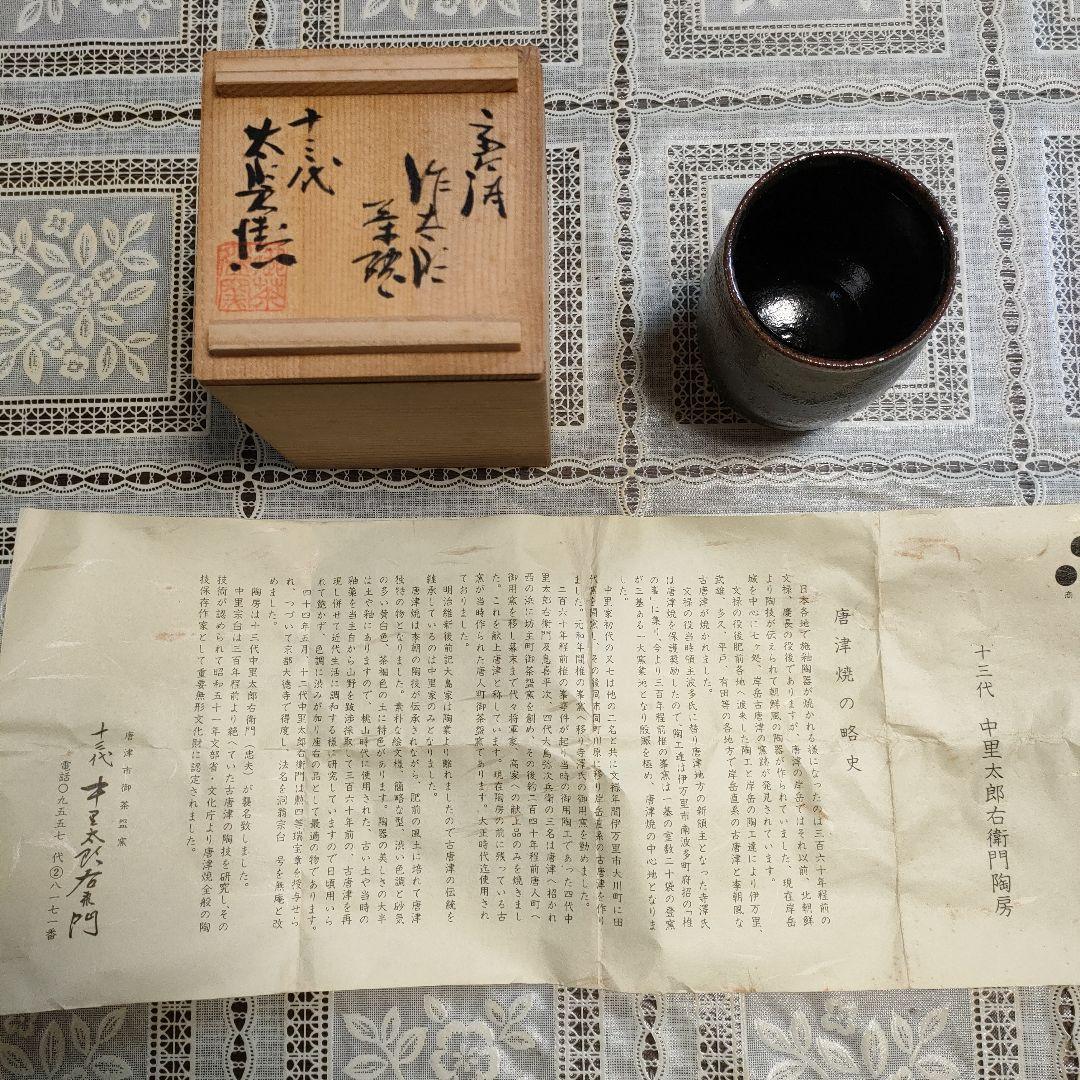 唐津
作太郎
茶碗
十三代
十三代 中里太郎右衛門陶房
唐津焼の略史
日本各地で施釉陶器が焼かれる様になったのは三百六十年程前の
文禄、慶長の役後でありますが、唐津の岸岳ではそれ以前、北朝鮮
より陶技が伝えられて朝鮮風の陶器が作られていました。現在岸岳
城を中心に七ヶ処、岸岳古唐津の窯跡が発見されています。
文禄の役後肥前各地へ渡来した陶工と岸岳の陶工達により伊万里、
武雄、多久、平戸、有田等の各地方で岸岳直系の古唐津と李朝風な
古唐津が焼かれました。
文禄の役当時領主波多氏に替り唐津地方の新領主となった寺澤氏
は唐津焼を保護奨励したので、陶工達は伊万里市南波多町府招の「椎
の峯」に集り、今より三百年程前椎の峯窯は一基の室数二十袋の登窯
が二基ある一大窯業地となり殷賑を極め、唐津焼の中心地となりま
した。
中里家初代の又七は他の二名と共に文禄年間伊万里市大川町に田
代窯を開窯し、その後同市同町川原に移り岸岳直系の古唐津を作り
ました。元和年間椎の峯窯へ移り寺澤氏の御用窯を勤めました。
二百六十年程前椎の峯事件が起り、当時の御用陶工であった四代中
里太郎右衛門及息喜平次、四代大島弥次兵衛の三名は唐津へ招かれ
西の浜に坊主町御茶盌窯を創め、その後約二百四十年程前唐人町へ
御用窯を移し幕末まで代々将軍家、高家への献上品のみを焼きまし
た。これを献上唐津と称しています。現在陶房の前に残っている古
窯が当時作られた唐人町御茶盌窯であります。大正時代迄使用され
ておりました。
明治維新後前記大島家は陶業より離れましたので古唐津の伝統を
継承しているのは中里家のみとなりました。
唐津焼は李朝の陶技が伝承されながら、肥前の風土に培れて唐津
独特の物となりました。素朴な絵文様、簡略な型、渋い色調と砂気
の多い黄白色、茶褐色の土に特色があります。陶器の美しさの大半
は土や釉にありますので、桃山時代に使用された、古い土や当時の
釉薬を当主自から山野を跋渉採取して三百六十年前の、古唐津を再
現し併せて近代生活に調和する様に研究していますので日頃用いら
れて飽かず、色調に渋みが加り座右の品として最適の物であります。
四十四年五月、十二代中里太郎右衛門は勲四等瑞宝章を授与せら
れ、つづいて京都大徳寺で得度し、法名を洞翁宗白 号を無庵と改
めました。
陶房は十三代中里太郎右衛門(忠夫)が襲名致しました。
中里宗白は三百年程前より絶へていた古唐津の陶技を研究し、その
技術が認められて昭和五十一年文部省・文化庁より唐津焼全般の陶
技保存作家として重要無形文化財に認定されました。
唐津市御茶盌窯
十三代 中里太郎右衛門
電話〇九五五七 代②八一七一番